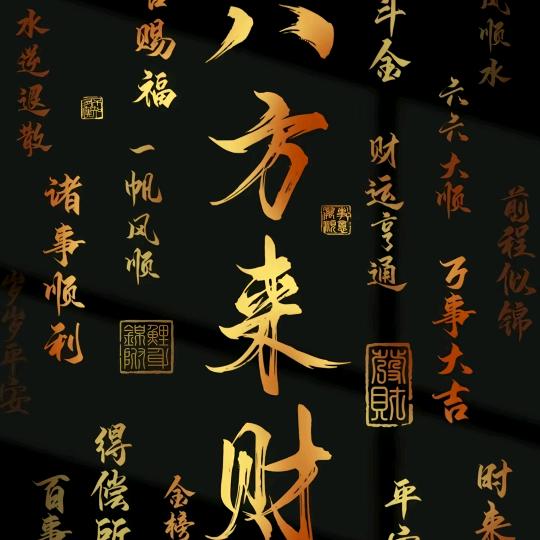 八方来财
水逆退散
赐福
一帆风顺
诸事顺利
岁岁平安
得偿所
百事
金榜
斗金
财运亨通
风顺水
六六大顺
万事大吉
前程似锦
平安
时来
發財